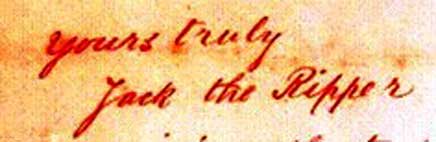 yours truly
Jack the Ripper